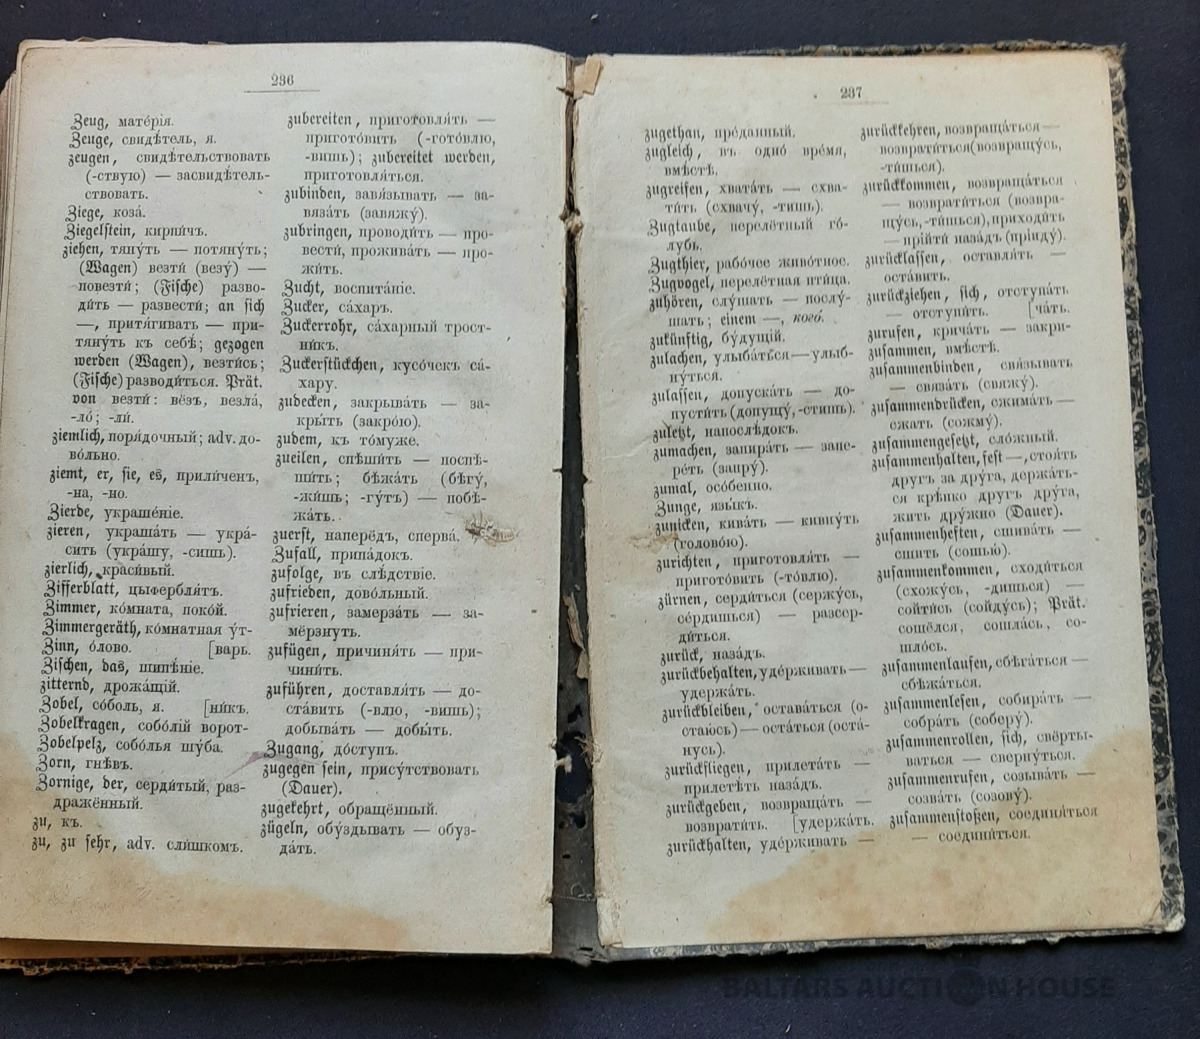 236
Zeug, мате́рія.
Zeuge, свидѣ́тель, я.
zeugen, свидѣ́тельствовать
(-ствую) — засвидѣ́тель-
ствовать.
Ziege, коза́.
Ziegelstein, кирпи́чъ.
ziehen, тяну́ть — потяну́ть;
(Wagen) везти́ (везу́) —
повезти́; (Fische) разво-
ди́ть — развести́; an sich
—, притя́гивать — при-
тяну́ть къ себѣ́; gezogen
werden (Wagen), везти́сь;
(Fische) разводи́ться. Prät.
von везти́: вёзъ, везла́,
-ло́; -ли́.
ziemlich, поря́дочный; adv. до-
во́льно.
ziemt, er, sie, es, прили́ченъ,
-на, -но.
Zierde, украше́ніе.
zieren, украша́ть — укра́-
сить (укра́шу, -сишь).
zierlich, краси́вый.
Zifferblatt, цыфербля́тъ.
Zimmer, ко́мната, поко́й.
Zimmergeräth, ко́мнатная у́т-
Zinn, о́лово. [варь.
Zischen, das, шипѣ́ніе.
zitternd, дрожа́щій.
Zobel, со́боль, я. [ни́къ.
Zobelkragen, собо́лій ворот-
Zobelpelz, собо́лья шу́ба.
Zorn, гнѣвъ.
Zornige, der, серди́тый, раз-
дражённый.
zu, къ.
zu, zu sehr, adv. сли́шкомъ.
zubereiten, приготовля́ть —
пригото́вить (-гото́влю,
-вишь); zubereitet werden,
приготовля́ться.
zubinden, завя́зывать — за-
вяза́ть (завяжу́).
zubringen, проводи́ть — про-
вести́, прожива́ть — про-
жи́ть.
Zucht, воспита́ніе.
Zucker, са́харъ.
Zuckerrohr, са́харный трост-
ни́къ.
Zuckerstückchen, кусо́чекъ са́-
хару.
zudecken, закрыва́ть — за-
кры́ть (закро́ю).
zudem, къ то́муже.
zueilen, спѣши́ть — поспѣ-
ши́ть; бѣжа́ть (бѣгу́,
-жи́шь; -гу́тъ) — побѣ-
жа́ть.
zuerst, наперёдъ, сперва́.
Zufall, припа́докъ.
zufolge, въ слѣ́дствіе.
zufrieden, дово́льный.
zufrieren, замерза́ть — за-
мёрзнуть.
zufügen, причиня́ть — при-
чини́ть.
zuführen, доставля́ть — до-
ста́вить (-влю, -вишь);
добыва́ть — добы́ть.
Zugang, до́ступъ.
zugegen sein, прису́тствовать
(Dauer).
zugekehrt, обращённый.
zügeln, обу́здывать — обуз-
да́ть.
237
zugethan, пре́данный.
zugleich, въ одно́ вре́мя,
вмѣ́стѣ.
zugreifen, хвата́ть — схва-
ти́ть (схвачу́, -тишь).
Zugtaube, перелётный го́-
лубь.
Zugthier, рабо́чее живо́тное.
Zugvogel, перелётная пти́ца.
zuhören, слу́шать — послу́-
шать; einem —, кого́.
zukünftig, бу́дущій.
zulachen, улыба́ться — улыб-
ну́ться.
zulassen, допуска́ть — до-
пусти́ть (допущу́, -стишь).
zuletzt, напослѣ́докъ.
zumachen, запира́ть — запе-
ре́ть (запру́).
zumal, осо́бенно.
Zunge, язы́къ.
zunicken, кива́ть — кивну́ть
(голово́ю).
zurichten, приготовля́ть —
пригото́вить (-то́влю).
zürnen, серди́ться (сержу́сь,
се́рдишься) — разсер-
ди́ться.
zurück, наза́дъ.
zurückbehalten, уде́рживать —
удержа́ть.
zurückbleiben, остава́ться (о-
стаю́сь) — оста́ться (оста́-
нусь).
zurückfliegen, прилета́ть —
прилетѣ́ть наза́дъ.
zurückgeben, возвраща́ть —
возврати́ть. [удержа́ть.
zurückhalten, уде́рживать —
zurückkehren, возвраща́ться —
возврати́ться (возвращу́сь,
-ти́шься).
zurückkommen, возвраща́ться
— возврати́ться (возвра-
щу́сь, -ти́шься), приходи́ть
— прійти́ наза́дъ (пріиду́).
zurücklassen, оставля́ть —
оста́вить.
zurückziehen, sich, отступа́ть
— отступи́ть. [ча́ть.
zurufen, крича́ть — закри-
zusammen, вмѣ́стѣ.
zusammenbinden, свя́зывать
— связа́ть (свяжу́).
zusammendrücken, сжима́ть —
сжать (сожму́).
zusammengesetzt, сло́жный.
zusammenhalten, fest —, стоя́ть
другъ за дру́га, держа́ть-
ся крѣ́пко другъ дру́га,
жить дру́жно (Dauer).
zusammenheften, сшива́ть —
сшить (сошью́).
zusammenkommen, сходи́ться
(схожу́сь, -дишься) —
сойти́сь (сойду́сь); Prät.
сошёлся, сошла́сь, со-
шло́сь.
zusammenlaufen, сбѣга́ться —
сбѣжа́ться.
zusammenlesen, собира́ть —
собра́ть (соберу́).
zusammenrollen, sich, свёрты-
ваться — сверну́ться.
zusammenrufen, созыва́ть —
созва́ть (созову́).
zusammenstoßen, соединя́ться
— соедини́ться.
BALTARS AUCTION HOUSE